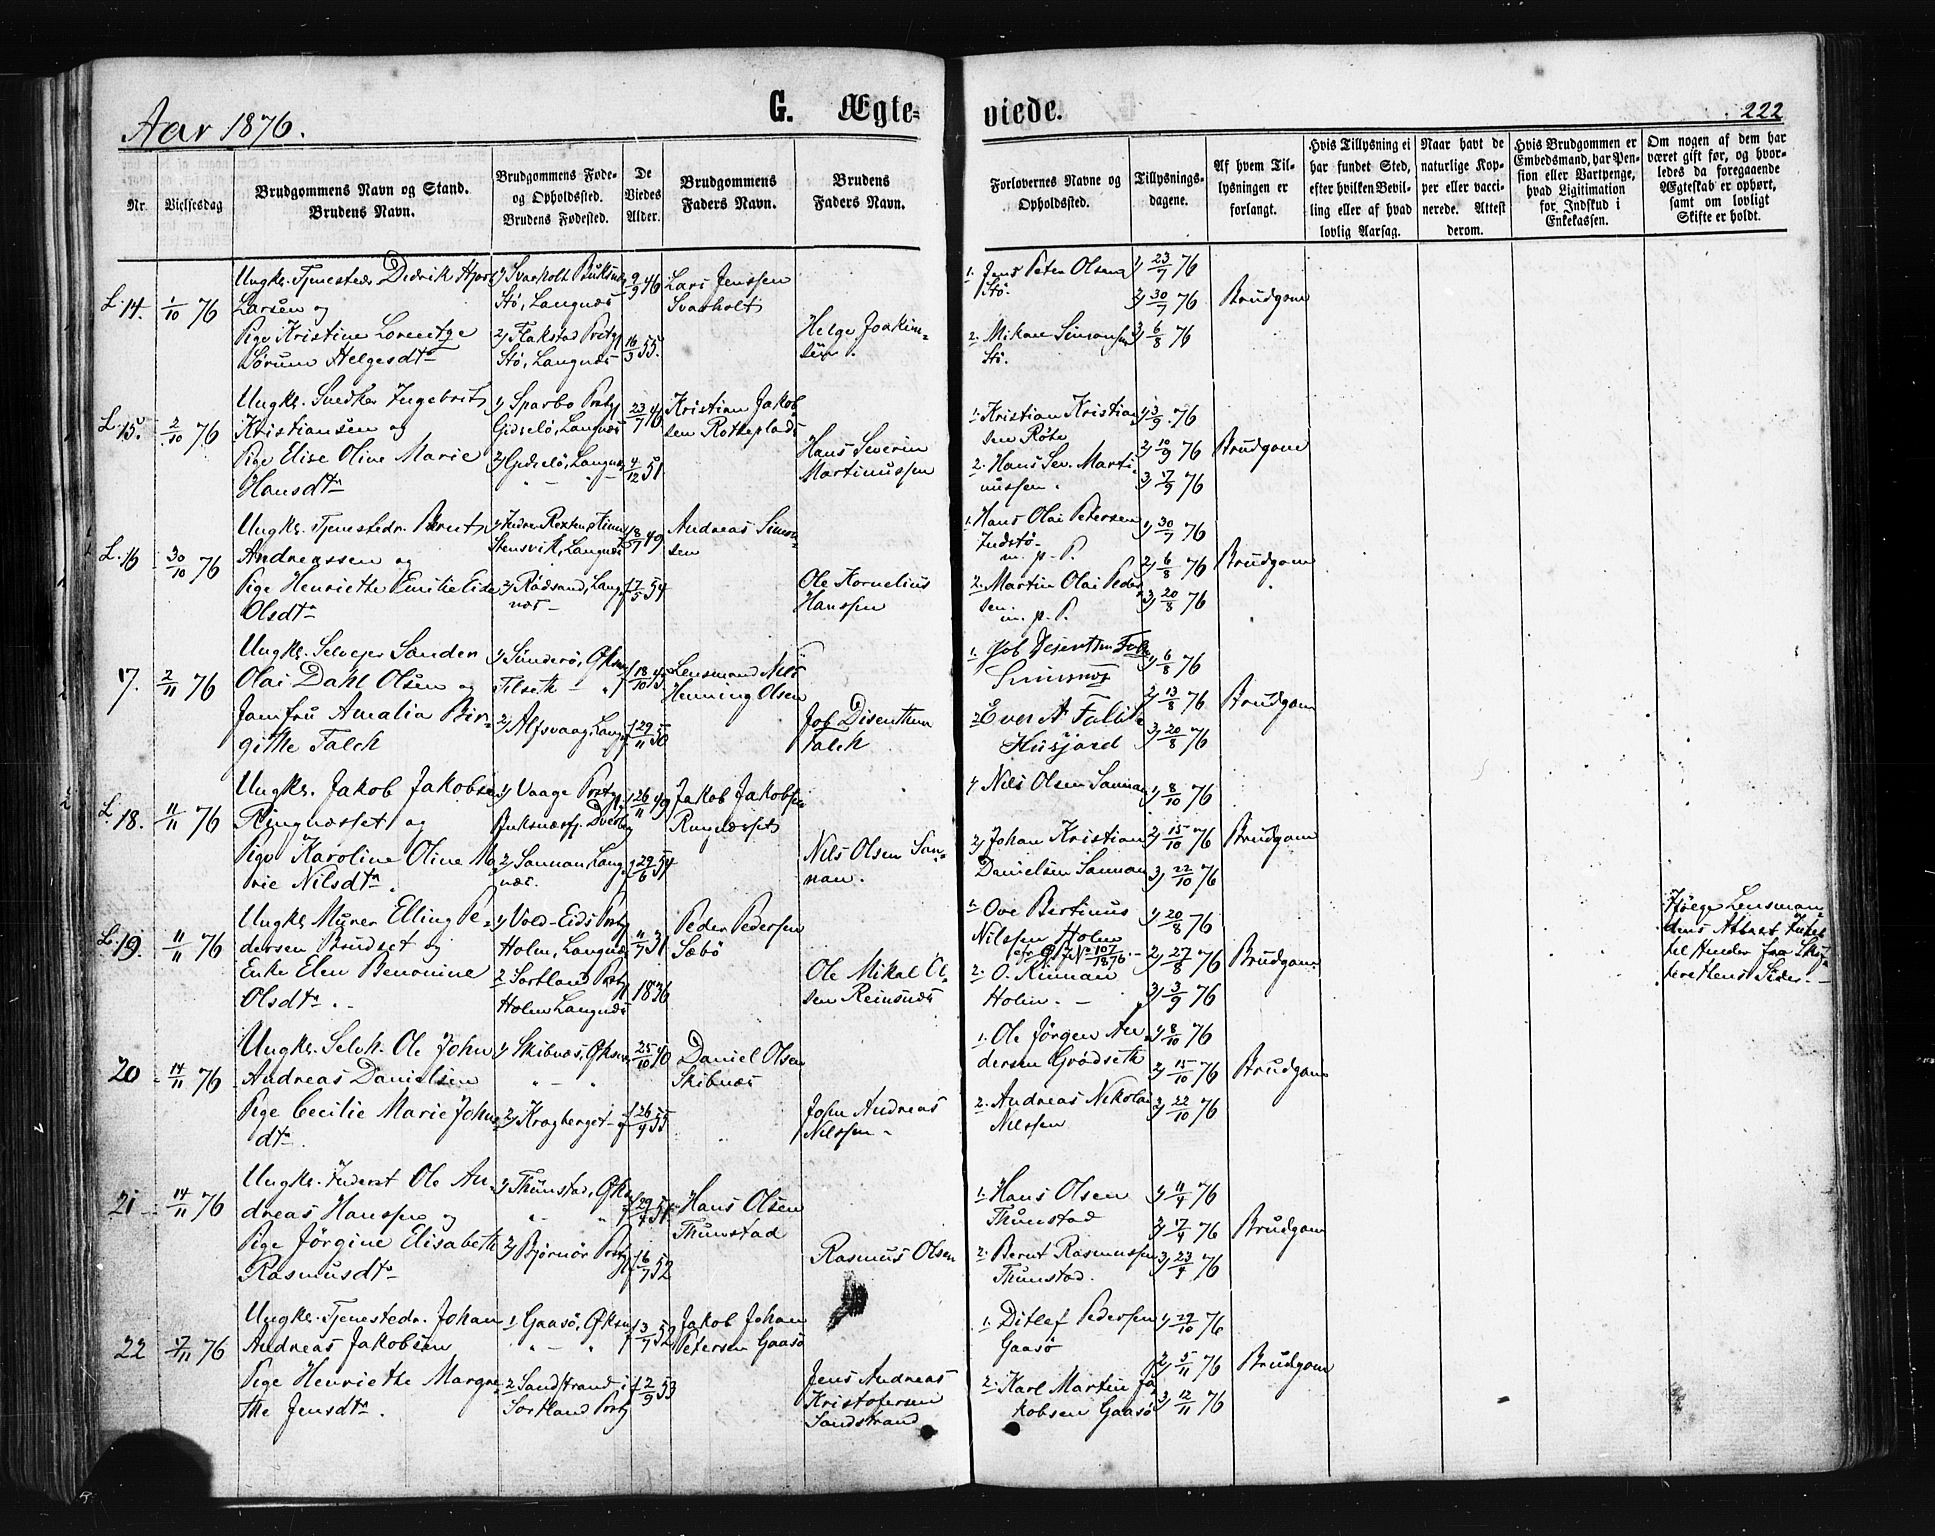 Aar 1876.
G. Ægte-
viede.
222
Nr.
Vielsesdag
Brudgommens Navn og Stand.
Brudens Navn.
Brudgommens Føde-
og Opholdssted.
Brudens Fødested.
De
Viedes
Alder.
Brudgommens
Faders Navn.
Brudens
Faders Navn.
Forlovernes Navne og
Opholdssted.
Tillysnings-
dagene.
Af hvem Til-
lysningen er
forlangt.
Hvis Tillysning ei
har fundet Sted,
efter hvilken Bevil-
ling eller af hvad
lovlig Aarsag.
Naar havt de
naturlige Kop-
per eller vacci-
nerede. Attest
derom.
Hvis Brudgommen er
Embedsmand, har Pen-
sion eller Vartpenge,
hvad Ligitimation
for Indskud i
Enkekassen.
Om nogen af dem har
været gift før, og hvor-
ledes da foregaaende
Ægteskab er ophørt,
samt om lovligt
Skifte er holdt.
L. 14.
1/10 76
Ungkr. Tjenestedr. Didrik Hjort
Larsen og
Pige Kristine Lorentze
Sørum Helgesdtr
1) Svarholt Buksnæs
Stø, Langnæs
2) Flakstad Prstgj
Stø, Langnæs
9/9 46
16/3 55.
Lars Jenssen
Svarholt
Helge Joakim-
sen.
1. Jens Peter Olsen
Stø.
2. Mikan Simonsen
Stø.
1) 23/7 76
2) 30/7 76
3) 6/8 76
Brudgom
L. 15.
2/10 76
Ungkr. Snedker Ingebrikt
Kristiansen og
Pige Elise Oline Marie
Hansdtr
1) Sparbo Prstgj
Gidselø, Langnæs
2) Gidselø, Langnæs
23/7 46
4/12 51
Kristian Jakob
sen Rotteplads
Hans Severin
Martinussen
1. Kristian Kristian
sen Røte
2. Hans Sev. Marti-
nussen.
1) 3/9 76
2) 10/9 76
3) 17/9 76
Brudgom
L. 16
30/10 76
Ungkr. Tjenestedr. Bernt
Andreassen og
Pige Henriethe Emilie Eide
Olsdtr
Stensvik, Langnæs
2) Rødsand, Lang-
næs
18/7 49
17/5 54
Andreas Simon-
sen
Ole Kornelius
Hanssen
1. Hans Olai Petersen
Indstø
m. p. P.
2. Martin Olai Peder
sen.
m. p. P.
1) 30/7 76
2) 6/8 76
3) 20/8 76
Brudgom
17.
2/11 76
Ungkr. Selveier Sander
Olai Dahl Olsen og
Jomfru Amalia Bir-
gitte Falch
1) Sunderø, Øksnæs
Tilseth
2) Alfsvaag, Langn
18/10 45
29/11 50
Lensmand Nils
Henning Olsen
Job Disenthun
Falch
1. Job Disenthun Falch
2. Ever A Falch
Husjord
1) 6/8 76
2) 13/8 76
3) 20/8 76
Brudgom
L. 18.
11/11 76
Ungkr. Jakob Jakobsen
Ringnæsset og
Pige Karoline Oline Ma
rie Nilsdtr.
1) Vaage Prstgj
Buksnæsfj. Dverb
2) Sannan, Lang
næs.
26/11 49
29/6 54
Jakob Jakobsen
Ringnæsset
Nils Olsen San-
nan.
1) Nils Olsen Sannan
2) Johan Kristian
Danielsen Sannan
1) 8/10 76
2) 15/10 76
3) 22/10 76
Brudgom
L. 19.
11/11 76
Ungkr Murer Elling Pe-
dersen Brudset og
Enke Elen Benonine
Olsdtr.
1) Vold-Eids Prstgj
Holm, Langnæs
2. Sortland Prstgj
Holm Langnæs
11/7 31
1836
Peder Pedersen
Sæbø
Ole Mikal Ol-
sen Reinsnæs
1. Ove Bertinus
Nilssen Holm
2. O. Rinnan
Holm.
1) 20/8 76
2) 27/8 76
3) 3/9 76
Brudgom
Ifølge Lensman-
dens Attest Intet
til Hinder fra Skif-
terettens Side.
20
14/11 76
Ungkr. Selvh. Ole Johan
Andreas Danielsen
Pige Cecilie Marie Johns-
dtr
1) Skibnæs, Øksnæs
2) Kragberget
25/10 40
26/9 55
Daniel Olsen
Skibnæs
John Andreas
Nilssen
1. Ole Jørgen An-
dersen Grødseth
2. Andreas Nikolai
Nilssen
1) 8/10 76
2) 15/10 76
3) 22/10 76
Brudgom
21
14/11 76
Ungkr. Inderst Ole An-
dreas Hanssen og
Pige Jørgine Elisabeth
Rasmusdtr
1) Thunstad, Øksn
2) Bjørnør Prstgj
29/4 51
16/7 52
Hans Olsen
Thunstad
Rasmus Olsen
1. Hans Olsen
Thunstad
2. Bernt Rasmussen
Thunstad.
1) 11/4 76
2) 17/4 76
3) 23/4 76
Brudgom
22
17/11 76
Ungkr. Tjenestedr. Johan
Andreas Jakobsen
Pige Henriethe Margre-
the Jensdtr.
1. Gaasø, Øksn
2. Sandstrand i
Sortland Prstgj
3/7 52
12/9 53
Jakob Johan
Petersen Gaasø
Jens Andreas
Kristofersen
Sandstrand
1. Ditlef Pedersen
Gaasø
2. Karl Martin Ja
kobsen Gaasø
1) 29/10 76
2) 5/11 76
3) 12/11 76
Brudgom